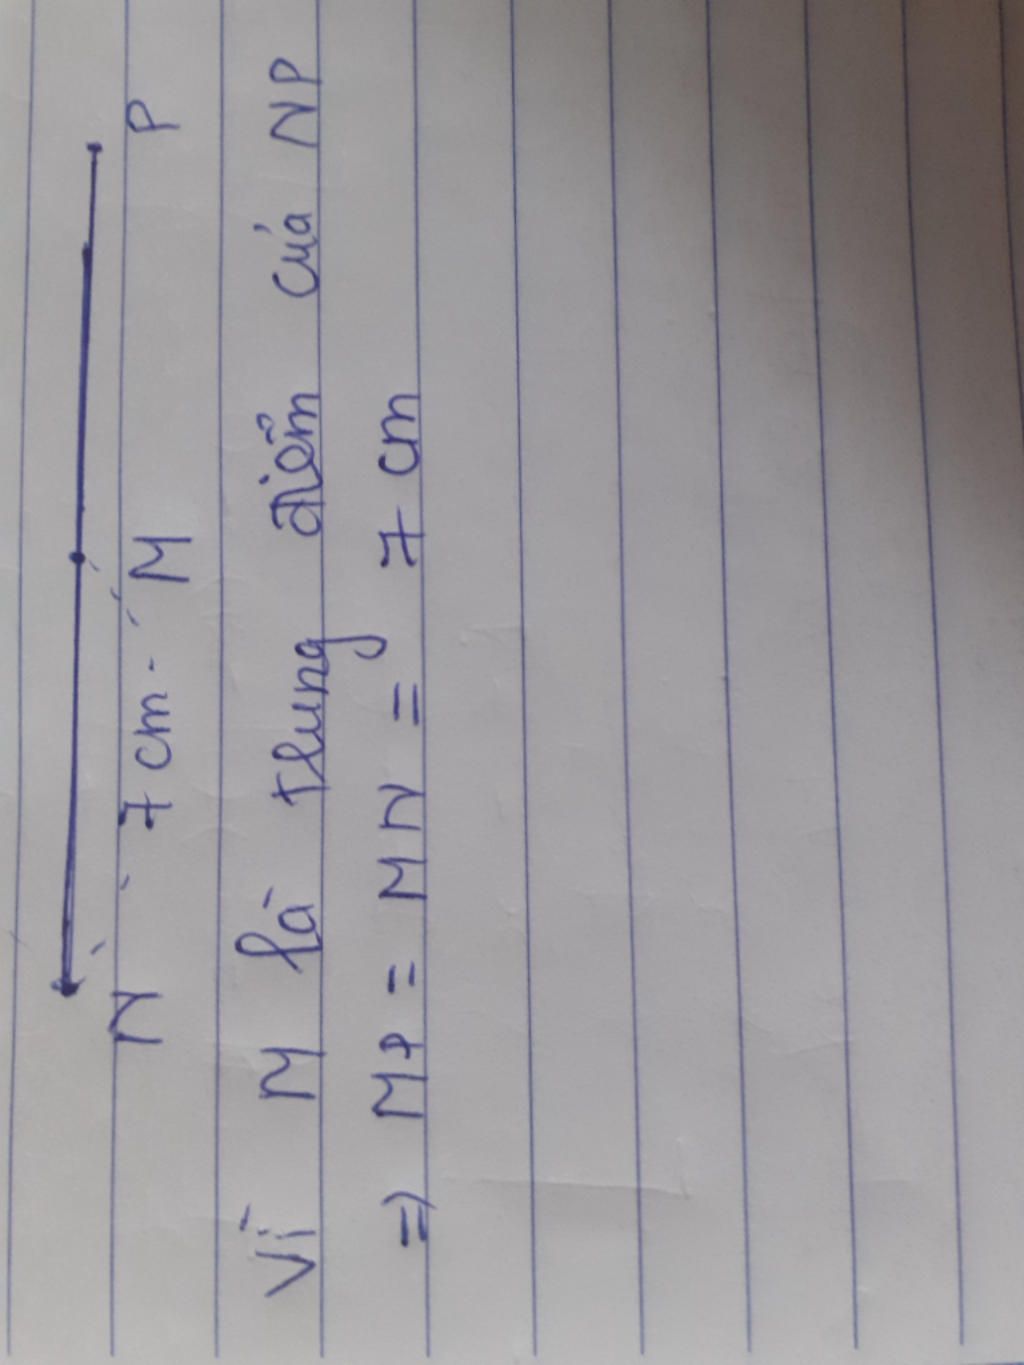 N 7 cm M P
Vì M là trung điểm của NP
⇒ MP = MN = 7 cm